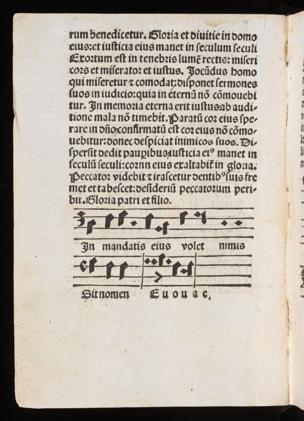 rum benedicetur. Gloria et diuitie in domo
eius: et iusticia eius manet in seculum seculi
Exortum est in tenebris lumē rectis: miseri
cors et miserator et iustus. Jocūdus homo
qui miseretur ⁊ comodat: disponet sermones
suos in iudicio: quia in eternū nō cōmouebi
tur. In memoria eterna erit iustus: ab audi
tione mala nō timebit. Paratū cor eius spe-
rare in dño: confirmatū est cor eius nō cōmo-
uebitur: donec despiciat inimicos suos. Di-
spersit dedit pauperibus: iusticia ei⁹ manet in
seculū seculi: cornu eius exaltabit̄ in gloria.
Peccator videbit ⁊ irascetur dentib⁹ suis fre
met et tabescet: desideriū peccatorum peri-
bit. Gloria patri et filio.
In mandatis eius volet nimis
Sit nomen Euouae.